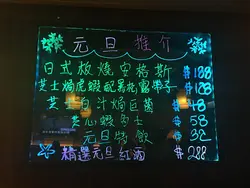 元旦推介
日式版燒安格斯 $188
芝士焗虎蝦配黑松露帶子 $188
芝士白汁焗巨菌 $48
芝心蝦多士 $58
元旦特飲 $32
精選元旦紅酒 $288